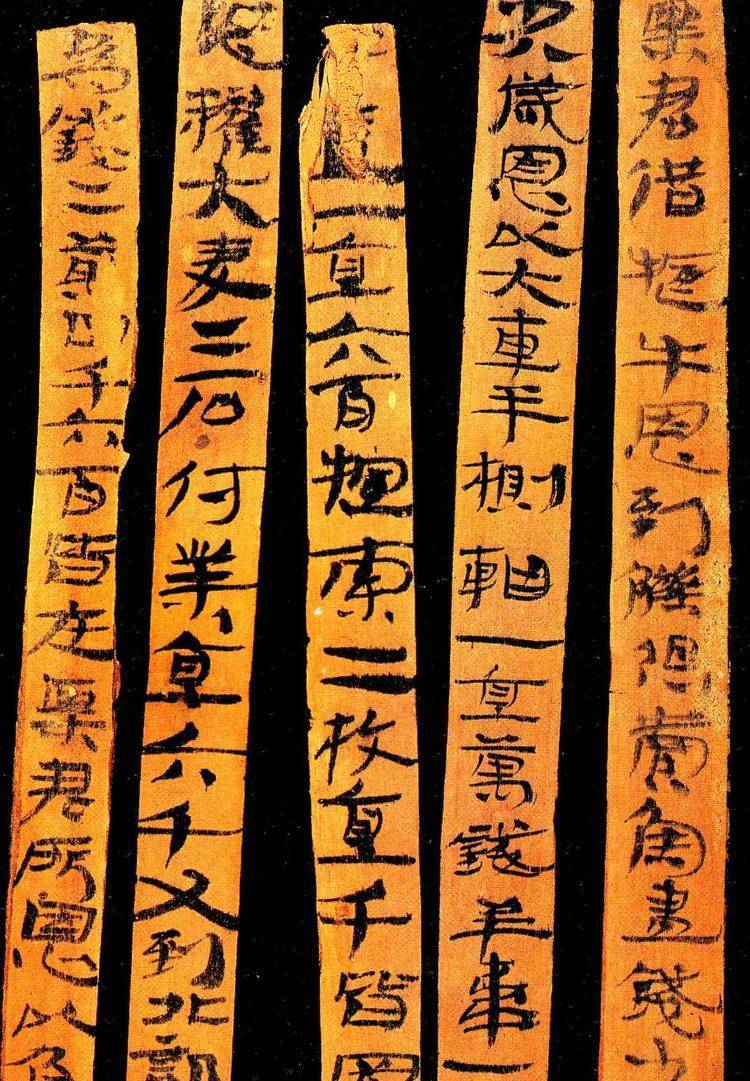 粟君借牛恩到觻得賣魚盡錢少
少八歲恩以大車半軸一直萬錢羊韋一
盧一直六百索二枚直千皆
恩糴大麥二石付業直六千又到北部
為錢二萬四千六百皆在粟君所恩以